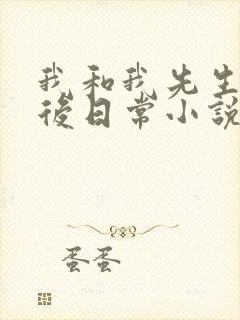 我和我先生
後日常小說
蛋蛋